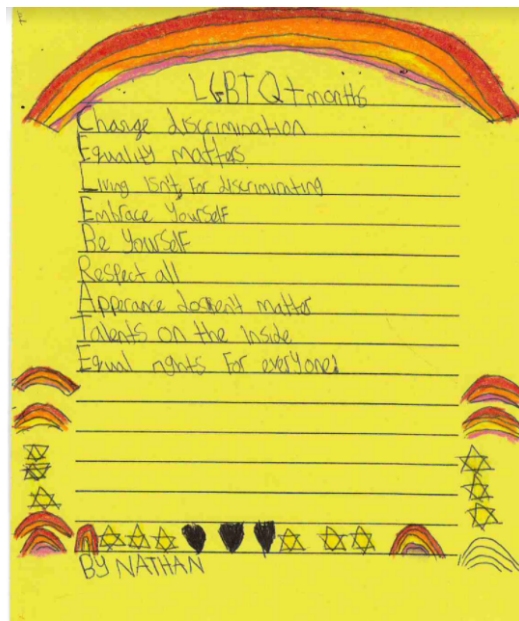 LGBTQ+ months
Change discrimination
Equality matters
Living isn't for discriminating
Embrace Yourself
Be Yourself
Respect all
Apperance doesent matter
Talents on the inside
Equal rights for everyone!
BY NATHAN